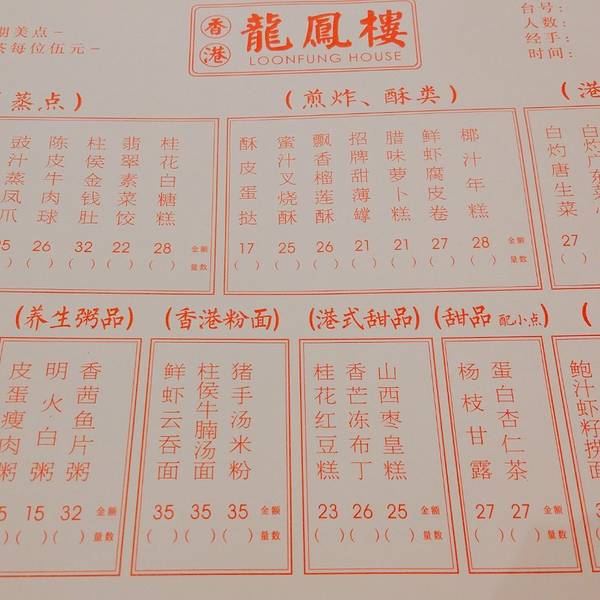 期美点-
茶每位伍元-
香港
龍鳳樓
LOONFUNG HOUSE
台号:
人数:
经手:
时间:
蒸点)
豉汁蒸凤爪
陈皮牛肉球
柱侯金钱肚
翡翠素菜饺
桂花白糖糕
25 26 32 22 28 金额
( ) ( ) ( ) ( ) ( ) 量数
(煎炸、酥类)
酥皮蛋挞
蜜汁叉烧酥
飘香榴莲酥
招牌甜薄罉
腊味萝卜糕
鲜虾腐皮卷
椰汁年糕
17 25 26 21 21 27 28 金额
( ) ( ) ( ) ( ) ( ) ( ) ( ) 量数
(港
白灼唐生菜
白灼广东菜
27
( )
(养生粥品)
皮蛋瘦肉粥
明火白粥
香茜鱼片粥
5 15 32 金额
( ) ( ) ( ) 量数
(香港粉面)
鲜虾云吞面
柱侯牛腩汤面
猪手汤米粉
35 35 35 金额
( ) ( ) ( ) 量数
(港式甜品)
桂花红豆糕
香芒冻布丁
山西枣皇糕
23 26 25 金额
( ) ( ) ( ) 量数
(甜品 配小点)
杨枝甘露
蛋白杏仁茶
27 27 金额
( ) ( ) 量数
(
鲍汁虾籽捞面
3
(